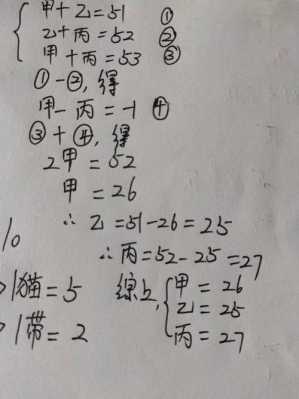 甲+乙=51 ①
乙+丙=52 ②
甲+丙=53 ③
①-②,得
甲-丙=-1 ④
③+④,得
2甲=52
甲=26
∴乙=51-26=25
10
∴丙=52-25=27
1猫=5
综上,甲=26
乙=25
1带=2
丙=27